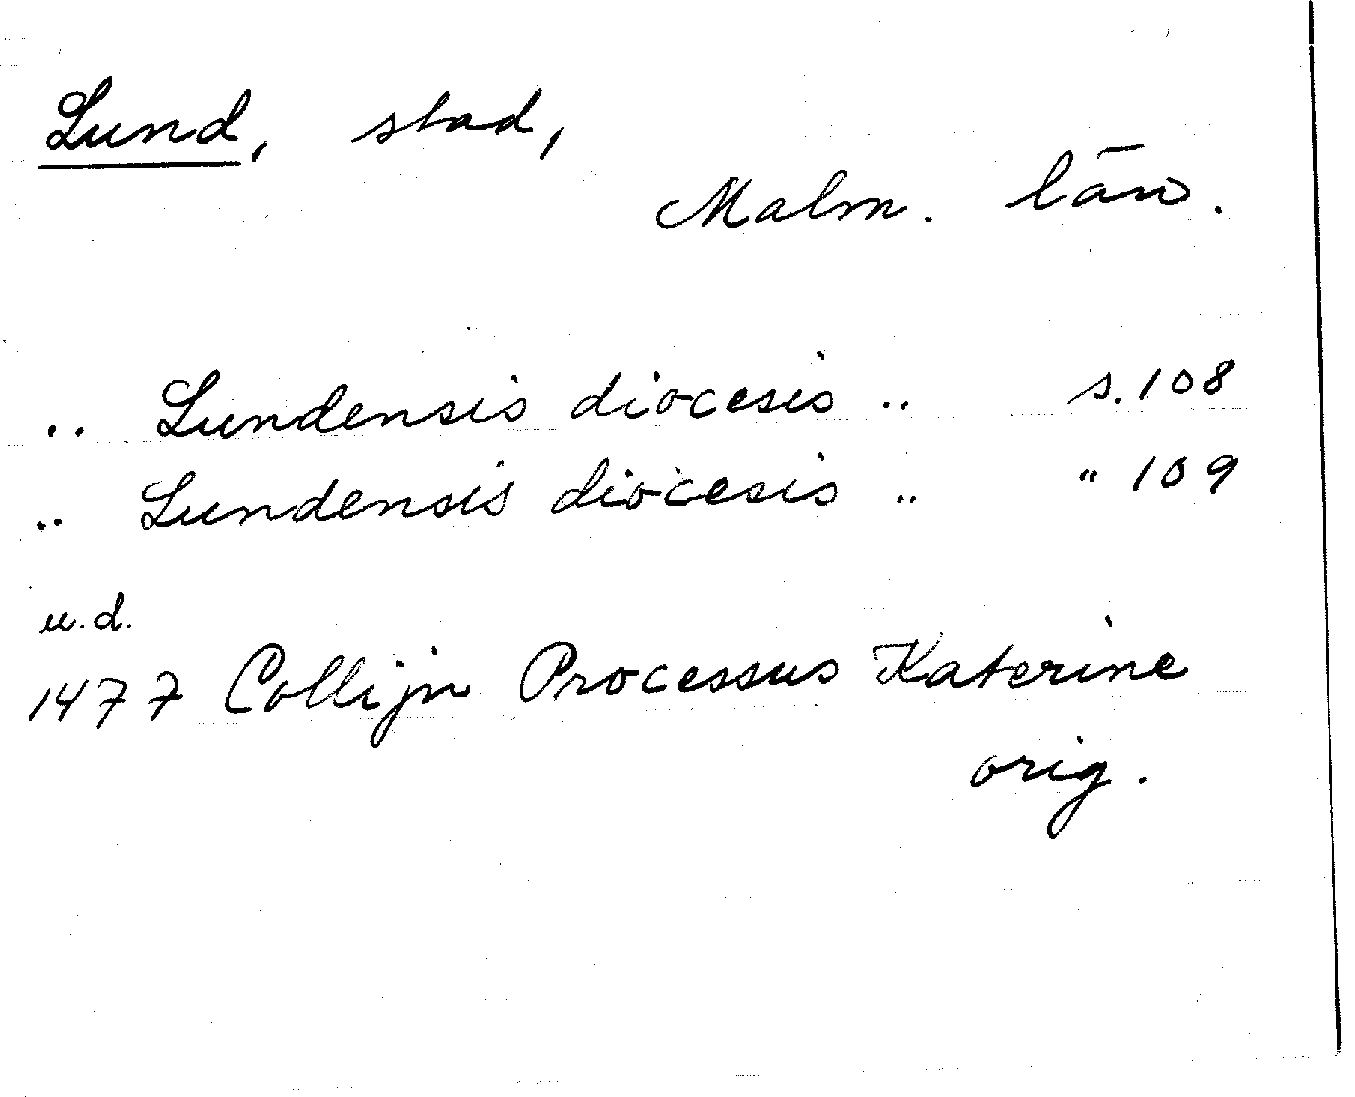 Lund, stad,
Malm. län.
.. Lundensis diocesis .. s. 108
.. Lundensis diocesis .. " 109
u.d.
1477 Collijn Processus Katerine
orig.